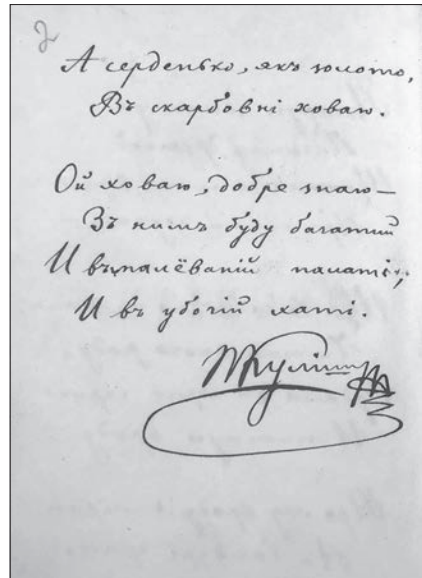 2
А серденько, якъ золото,
Въ скарбовні ховаю.
Ой ховаю, добре знаю —
Зъ нимъ буду багатий
И въ малёваній палаті,
И въ убогій хаті.
ПКуліш